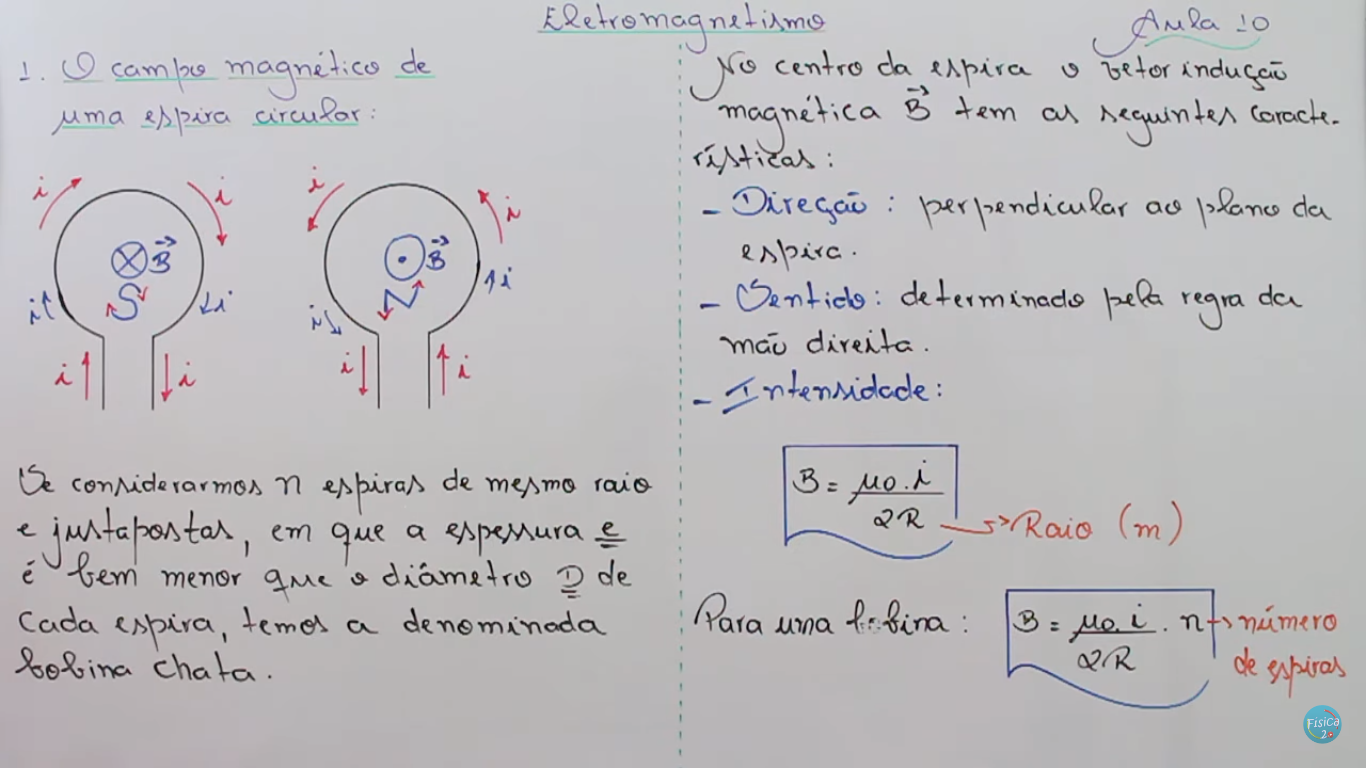 Eletromagnetismo
Aula 10
1. O campo magnético de
uma espira circular:
i
i
⊗ B⃗
S
i
i
i
i
i
i
⊙ B⃗
N
i
i
i
i
Se considerarmos n espiras de mesmo raio
e justapostas, em que a espessura e
é bem menor que o diâmetro D de
cada espira, temos a denominada
bobina chata.
No centro da espira o vetor indução
magnética B⃗ tem as seguintes caracte-
rísticas:
- Direção: perpendicular ao plano da
espira.
- Sentido: determinado pela regra da
mão direita.
- Intensidade:
B = μ0.i / 2R → Raio (m)
Para uma bobina: B = μ0.i / 2R . n → número
de espiras
Física
2.0